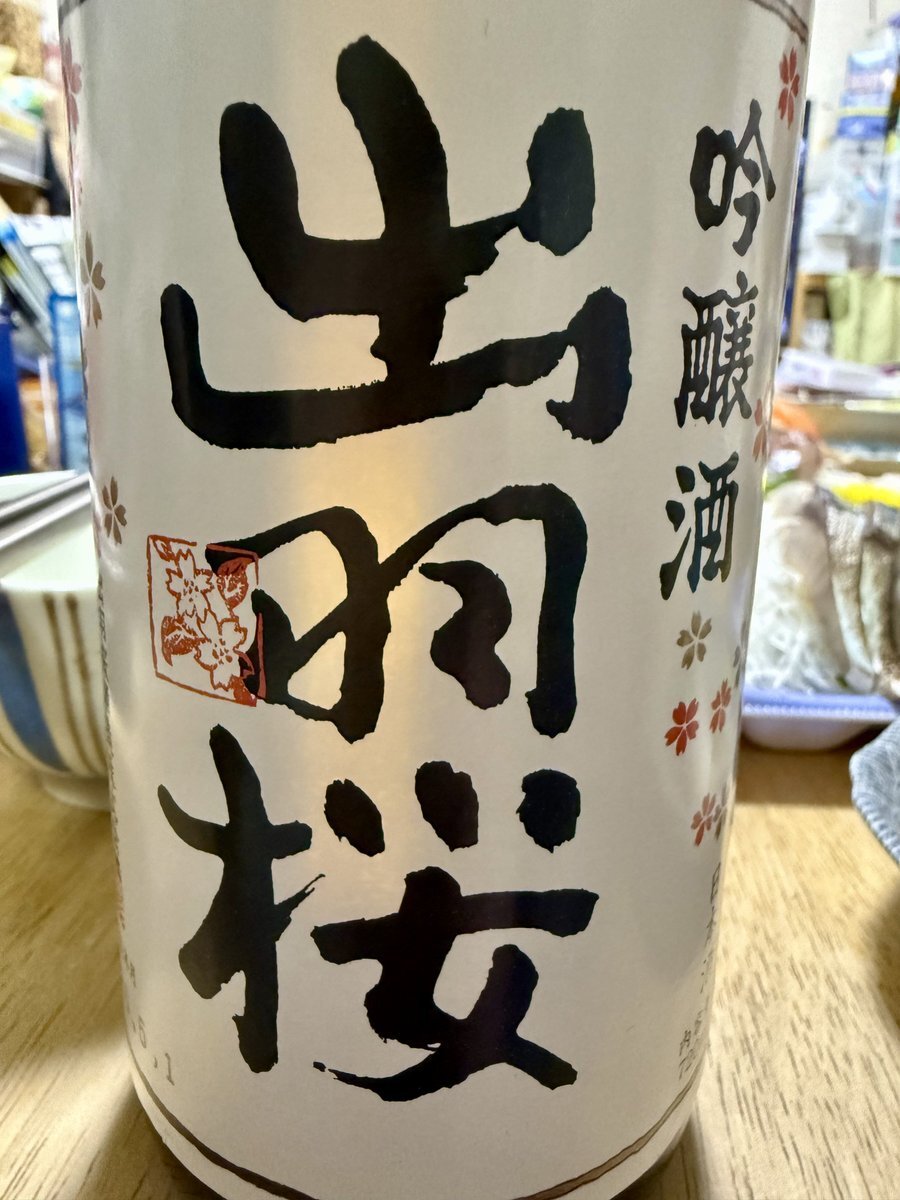 吟醸酒
出羽桜